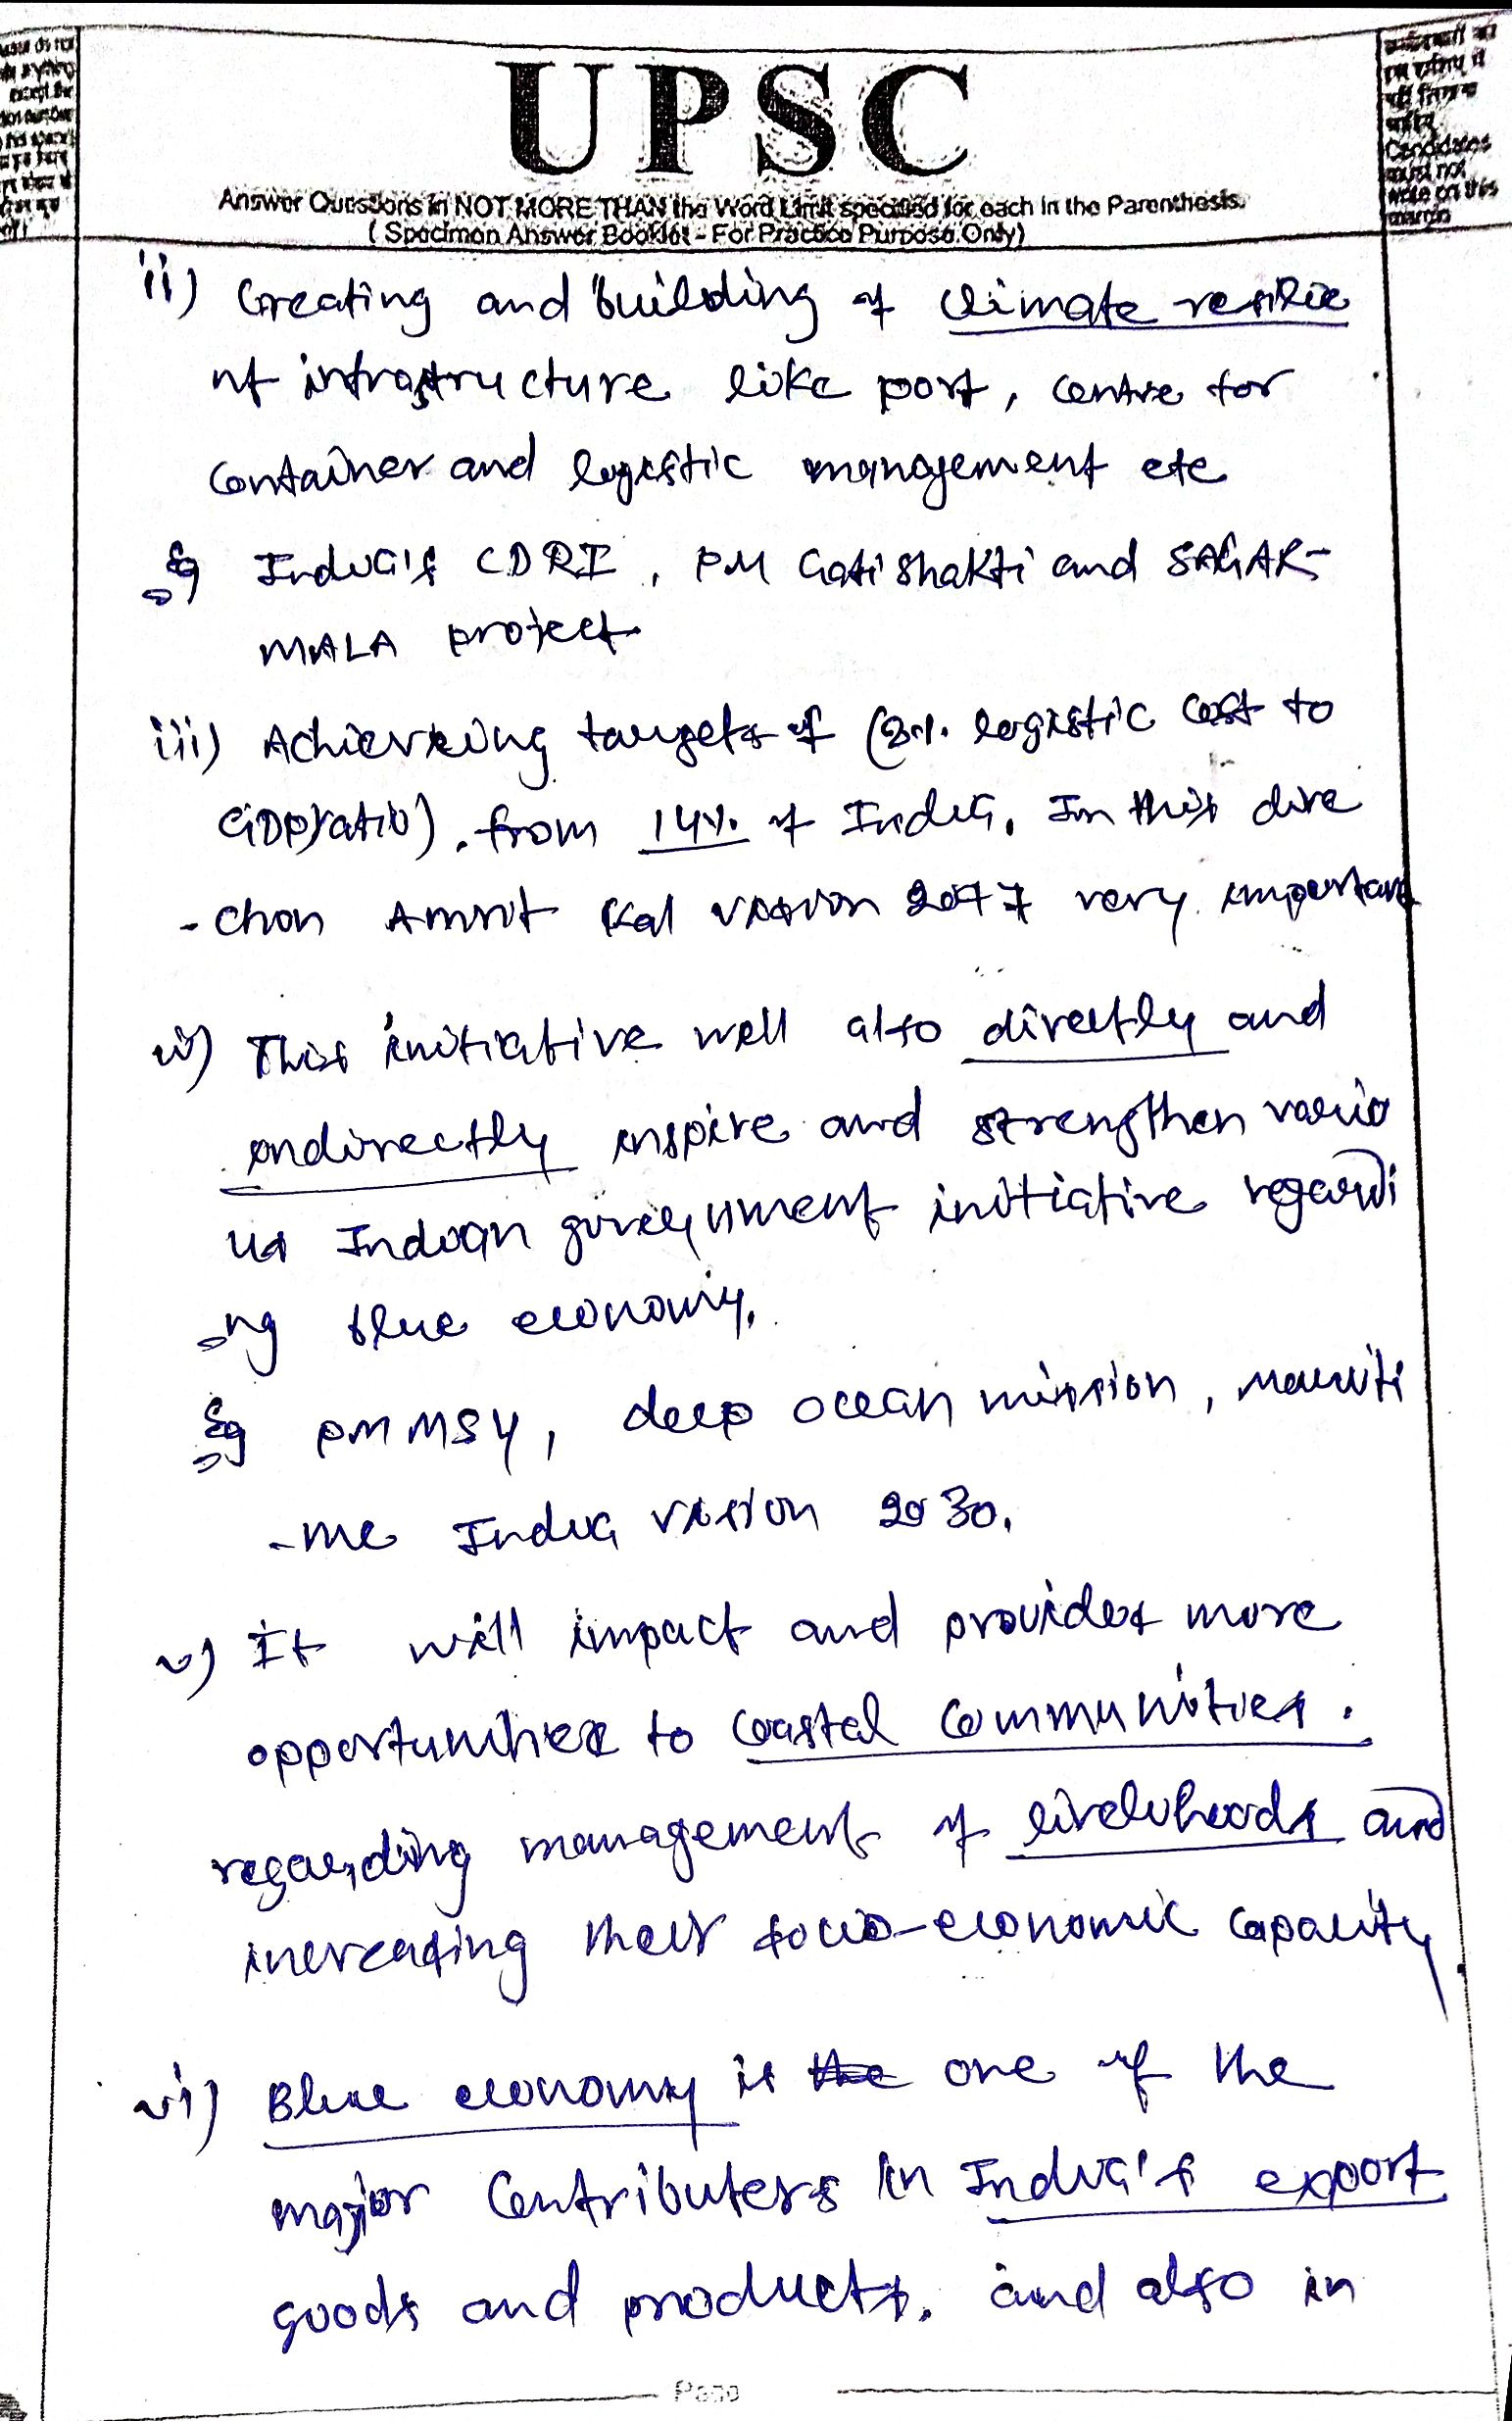 UPSC
Answer Questions in NOT MORE THAN the Word Limit specified for each in the Parenthesis.
( Specimen Answer Booklet - For Practice Purpose Only)
Candidates
must not
write on this
margin
ii) Creating and building of climate resilie
nt infrastructure like port, centre for
container and logistic management etc
Eg India's CDRI, PM Gatishakti and SAGAR-
MALA project
iii) Achieveing targets of (8% logistic cost to
GDP ratio). from 14% of India. In this dire
-ction Amrit Kal vision 2047 very important
iv) This initiative will also directly and
indirectly inspire and strengthen vario
us Indian government initiative regardi
ng blue economy.
Eg PMMSY, deep ocean mission, Mariti
-me India vision 2030.
v) It will impact and provides more
opportunities to coastal communities.
regarding management of livelihoods and
increasing their socio-economic capacity.
vi) Blue economy is the one of the
major contributers in India's export
goods and products. and also in
Page